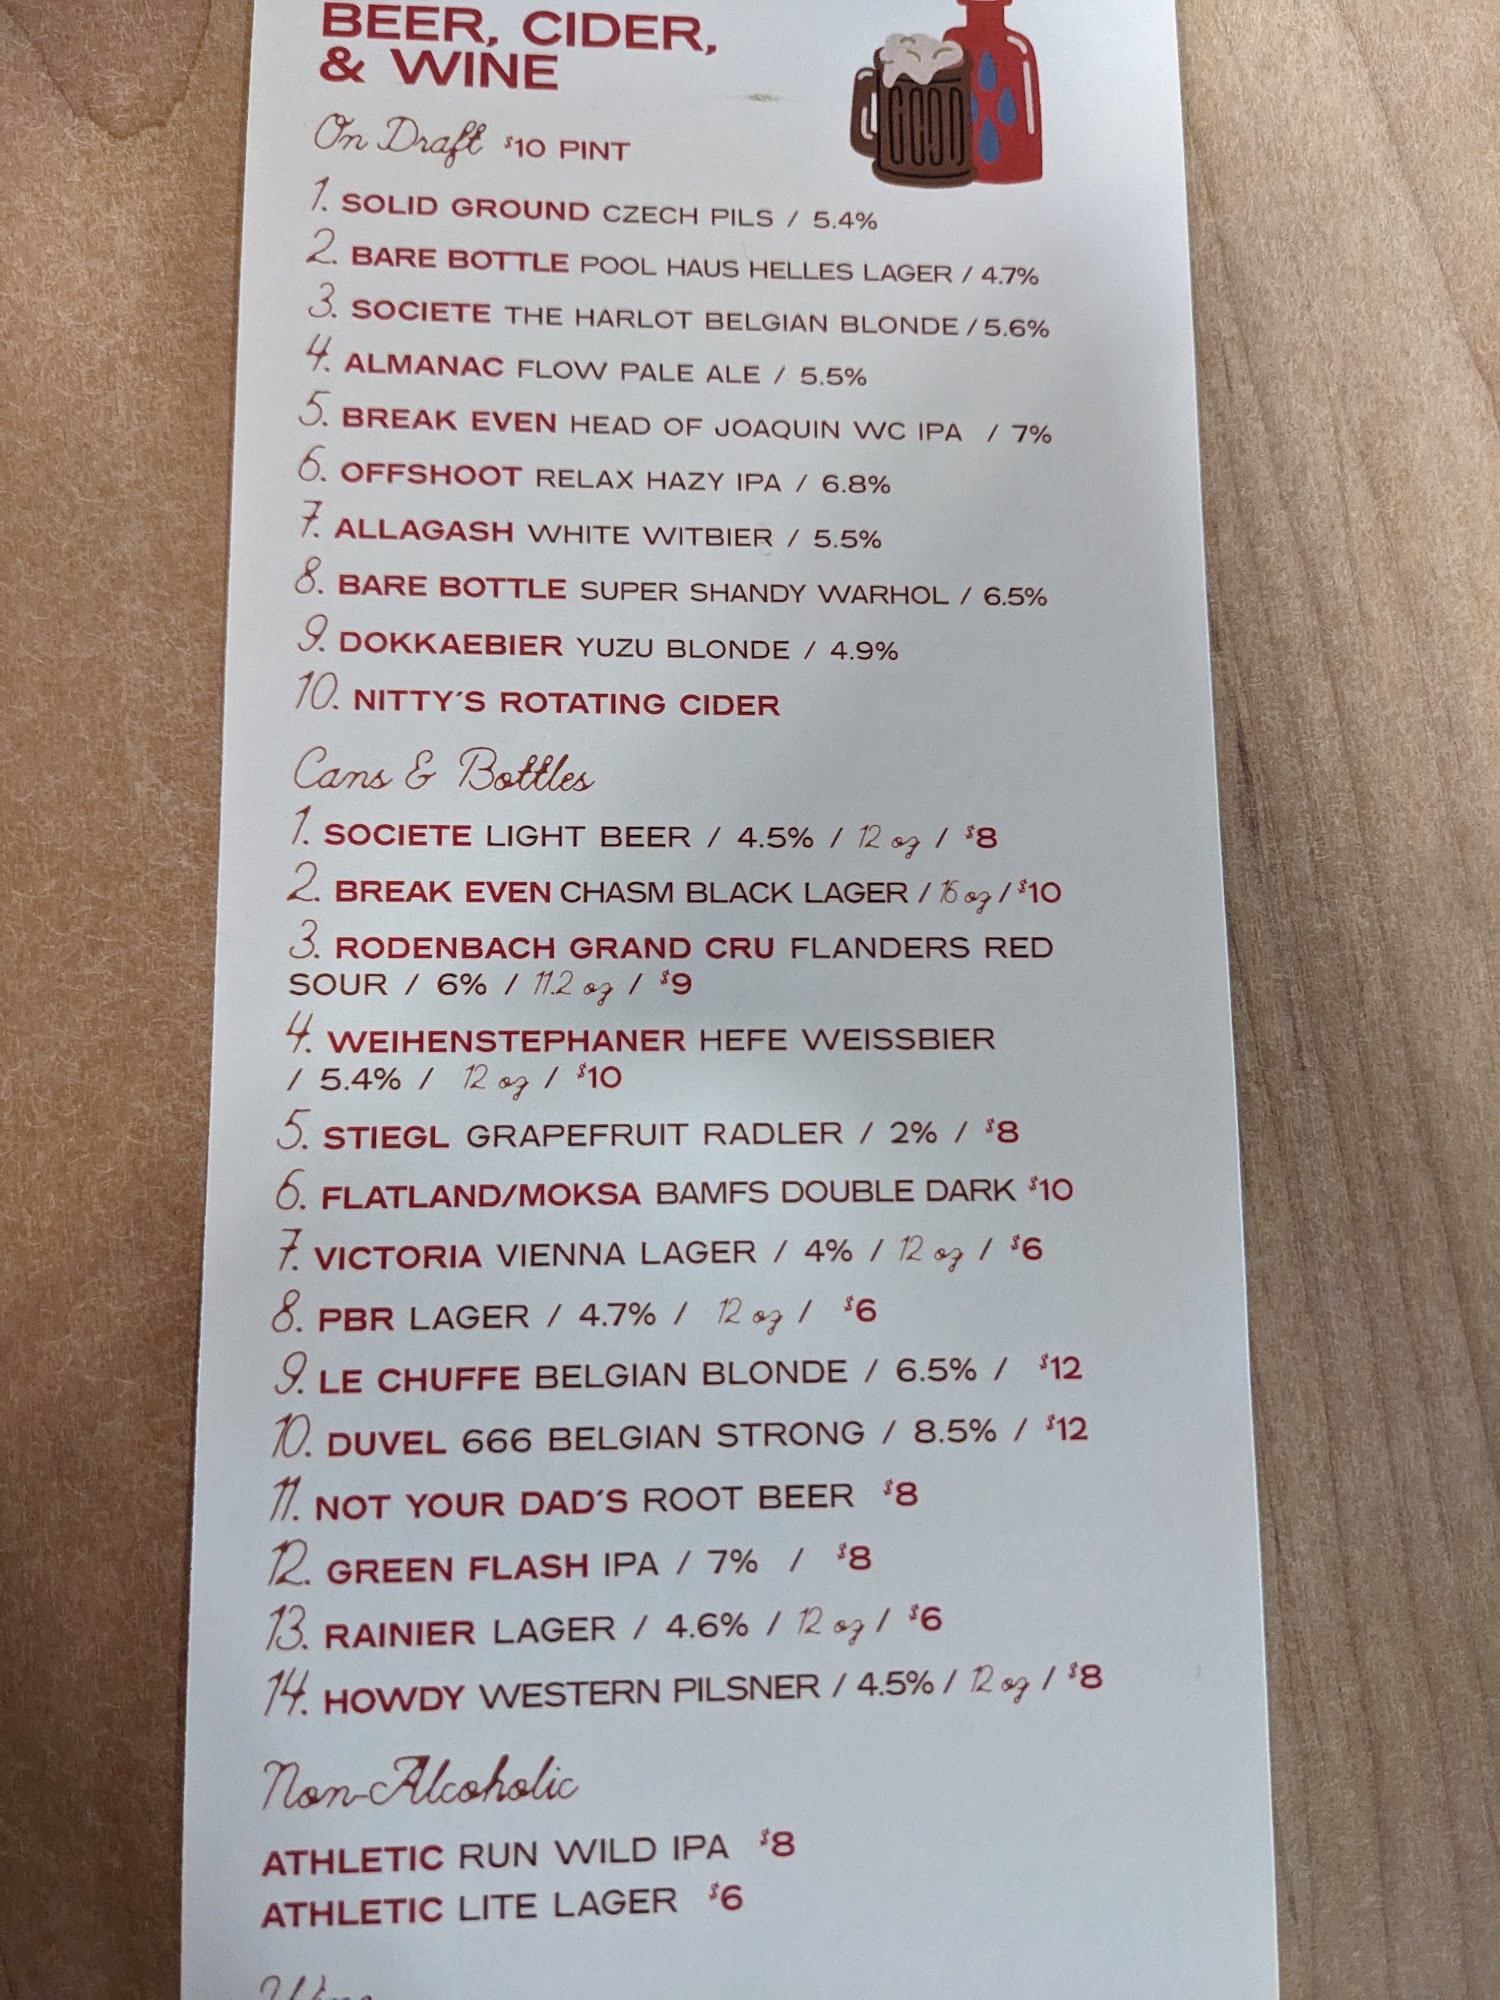 BEER, CIDER,
& WINE
On Draft $10 PINT
1. SOLID GROUND CZECH PILS / 5.4%
2. BARE BOTTLE POOL HAUS HELLES LAGER / 4.7%
3. SOCIETE THE HARLOT BELGIAN BLONDE / 5.6%
4. ALMANAC FLOW PALE ALE / 5.5%
5. BREAK EVEN HEAD OF JOAQUIN WC IPA / 7%
6. OFFSHOOT RELAX HAZY IPA / 6.8%
7. ALLAGASH WHITE WITBIER / 5.5%
8. BARE BOTTLE SUPER SHANDY WARHOL / 6.5%
9. DOKKAEBIER YUZU BLONDE / 4.9%
10. NITTY'S ROTATING CIDER
Cans & Bottles
1. SOCIETE LIGHT BEER / 4.5% / 12 oz / $8
2. BREAK EVEN CHASM BLACK LAGER / 16 oz / $10
3. RODENBACH GRAND CRU FLANDERS RED
SOUR / 6% / 11.2 oz / $9
4. WEIHENSTEPHANER HEFE WEISSBIER
/ 5.4% / 12 oz / $10
5. STIEGL GRAPEFRUIT RADLER / 2% / $8
6. FLATLAND/MOKSA BAMFS DOUBLE DARK $10
7. VICTORIA VIENNA LAGER / 4% / 12 oz / $6
8. PBR LAGER / 4.7% / 12 oz / $6
9. LE CHUFFE BELGIAN BLONDE / 6.5% / $12
10. DUVEL 666 BELGIAN STRONG / 8.5% / $12
11. NOT YOUR DAD'S ROOT BEER $8
12. GREEN FLASH IPA / 7% / $8
13. RAINIER LAGER / 4.6% / 12 oz / $6
14. HOWDY WESTERN PILSNER / 4.5% / 12 oz / $8
Non-Alcoholic
ATHLETIC RUN WILD IPA $8
ATHLETIC LITE LAGER $6